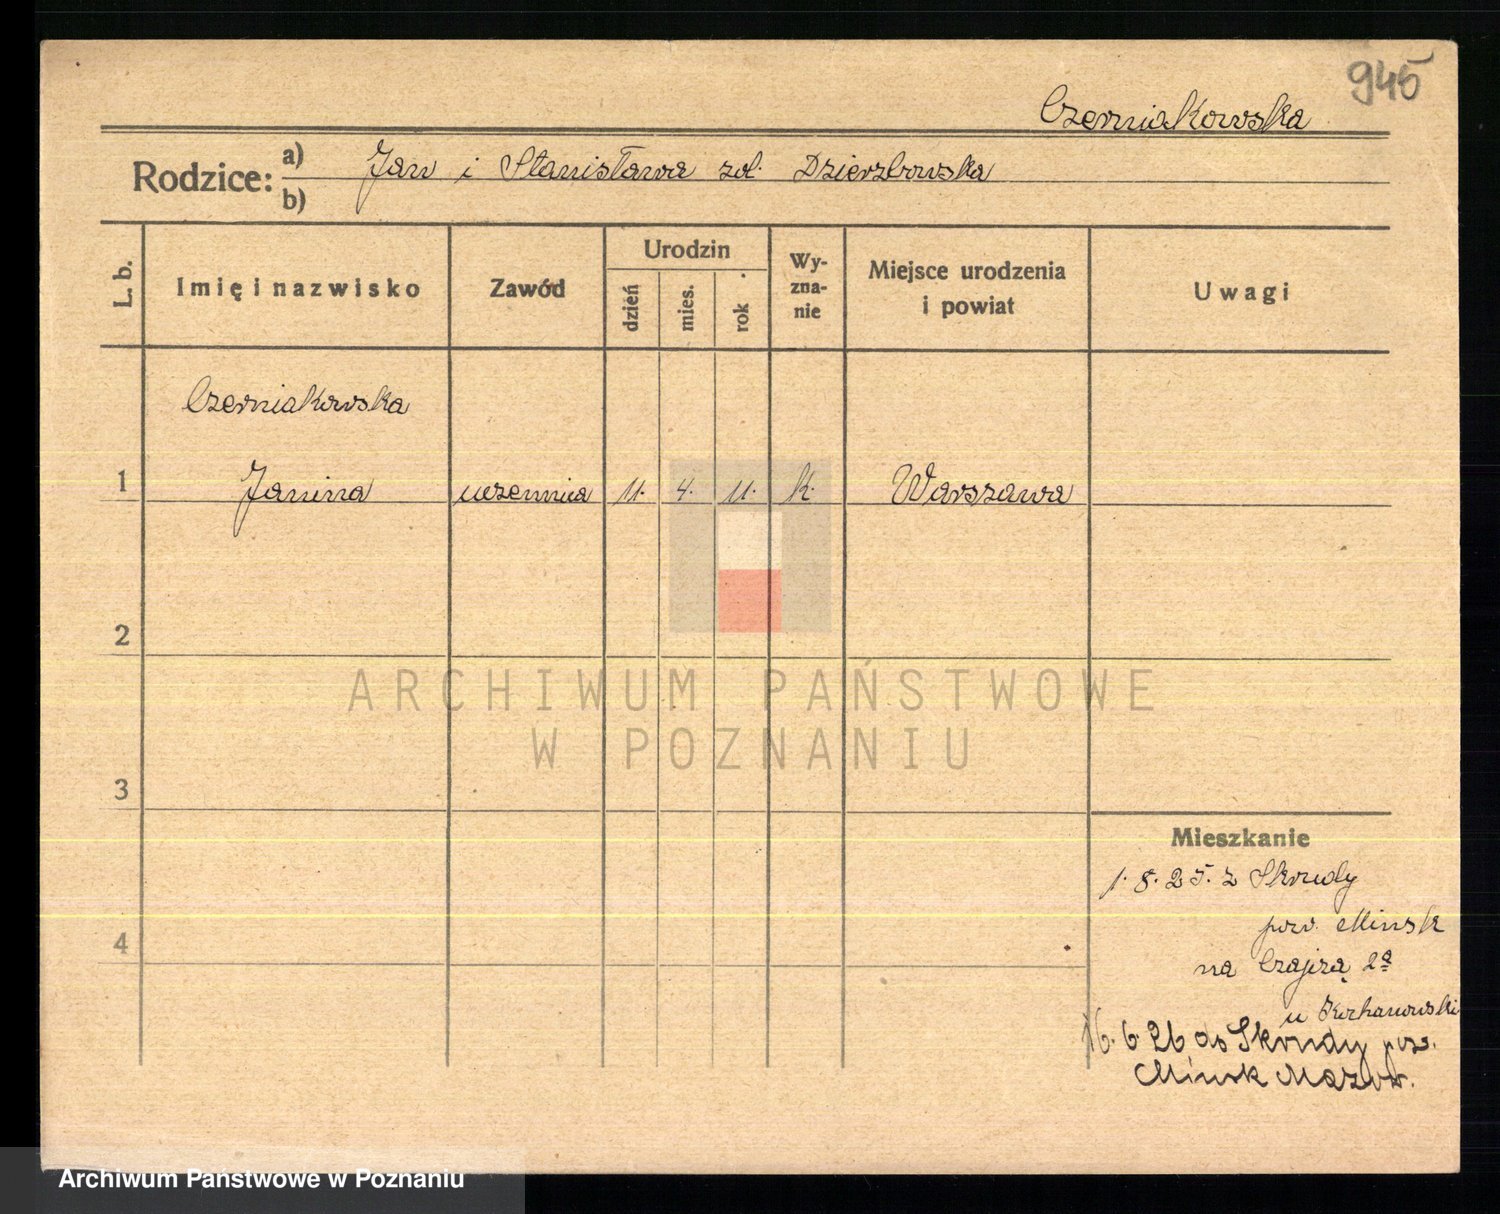 945
Czerniakowska
Rodzice: a) Jan i Stanisława zd. Dzierzbowska
b)
L. b.
Imię i nazwisko
Zawód
Urodzin
dzień
mies.
rok
Wy-
zna-
nie
Miejsce urodzenia
i powiat
Uwagi
Czerniakowska
1 Janina uczennica 11. 4. 11. k. Warszawa
2
3
4
ARCHIWUM PAŃSTWOWE
W POZNANIU
Mieszkanie
1. 8. 25. z Skrudy
pow. Minsk
na Czajczą 2a
u Kochanowski
16. 6 26 do Skrudy pow.
Minsk Mazow.
Archiwum Państwowe w Poznaniu